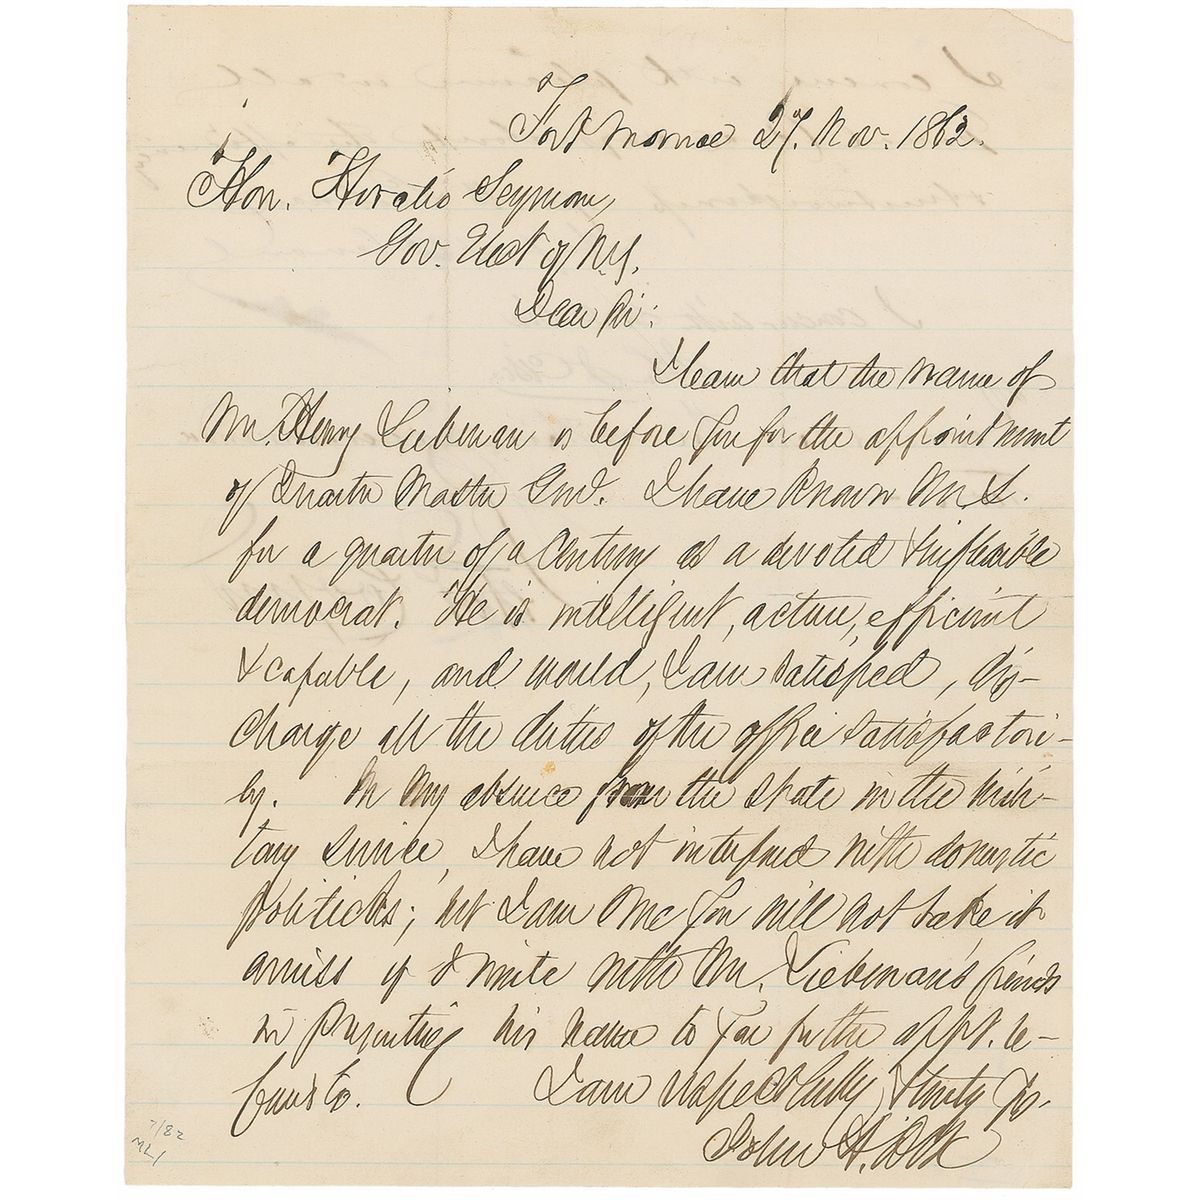 Fort Monroe 27. Nov. 1862.
Hon. Horatio Seymour,
Gov. Elect of N.Y.
Dear Sir:
I learn that the name of
Mr. Henry Liebenau is before you for the appointment
of Quarter Master Genl. I have known Mr L.
for a quarter of a Century as a devoted & inflexible
democrat. He is intelligent, active, efficient
& capable, and would, I am satisfied, dis-
charge all the duties of the office satisfactori-
ly. In my absence from the State in the mili-
tary service, I have not interfered with domestic
politicks; but I am sure you will not take it
amiss if I unite with Mr. Liebenau's friends
in presenting his name to you for the appt. re-
ferred to. I am respectfully & truly yrs.
John A. Dix
7/82
ML1